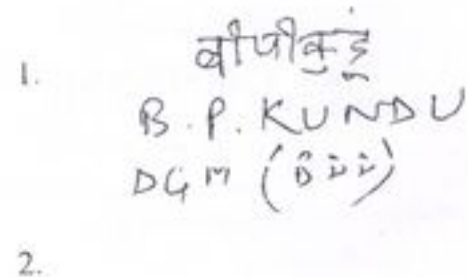 1.
बीपीकुंडू
B.P. KUNDU
DGM
2.